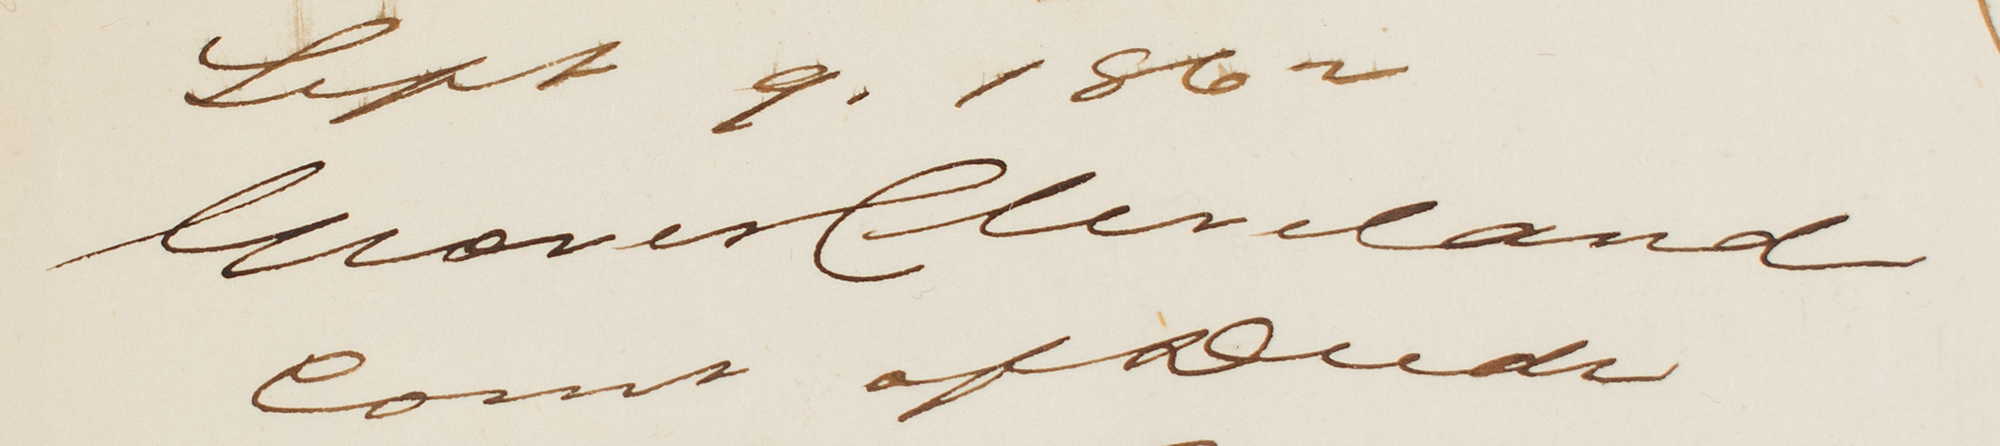 Sept 9. 1862
Grover Cleveland
Comr of Deeds